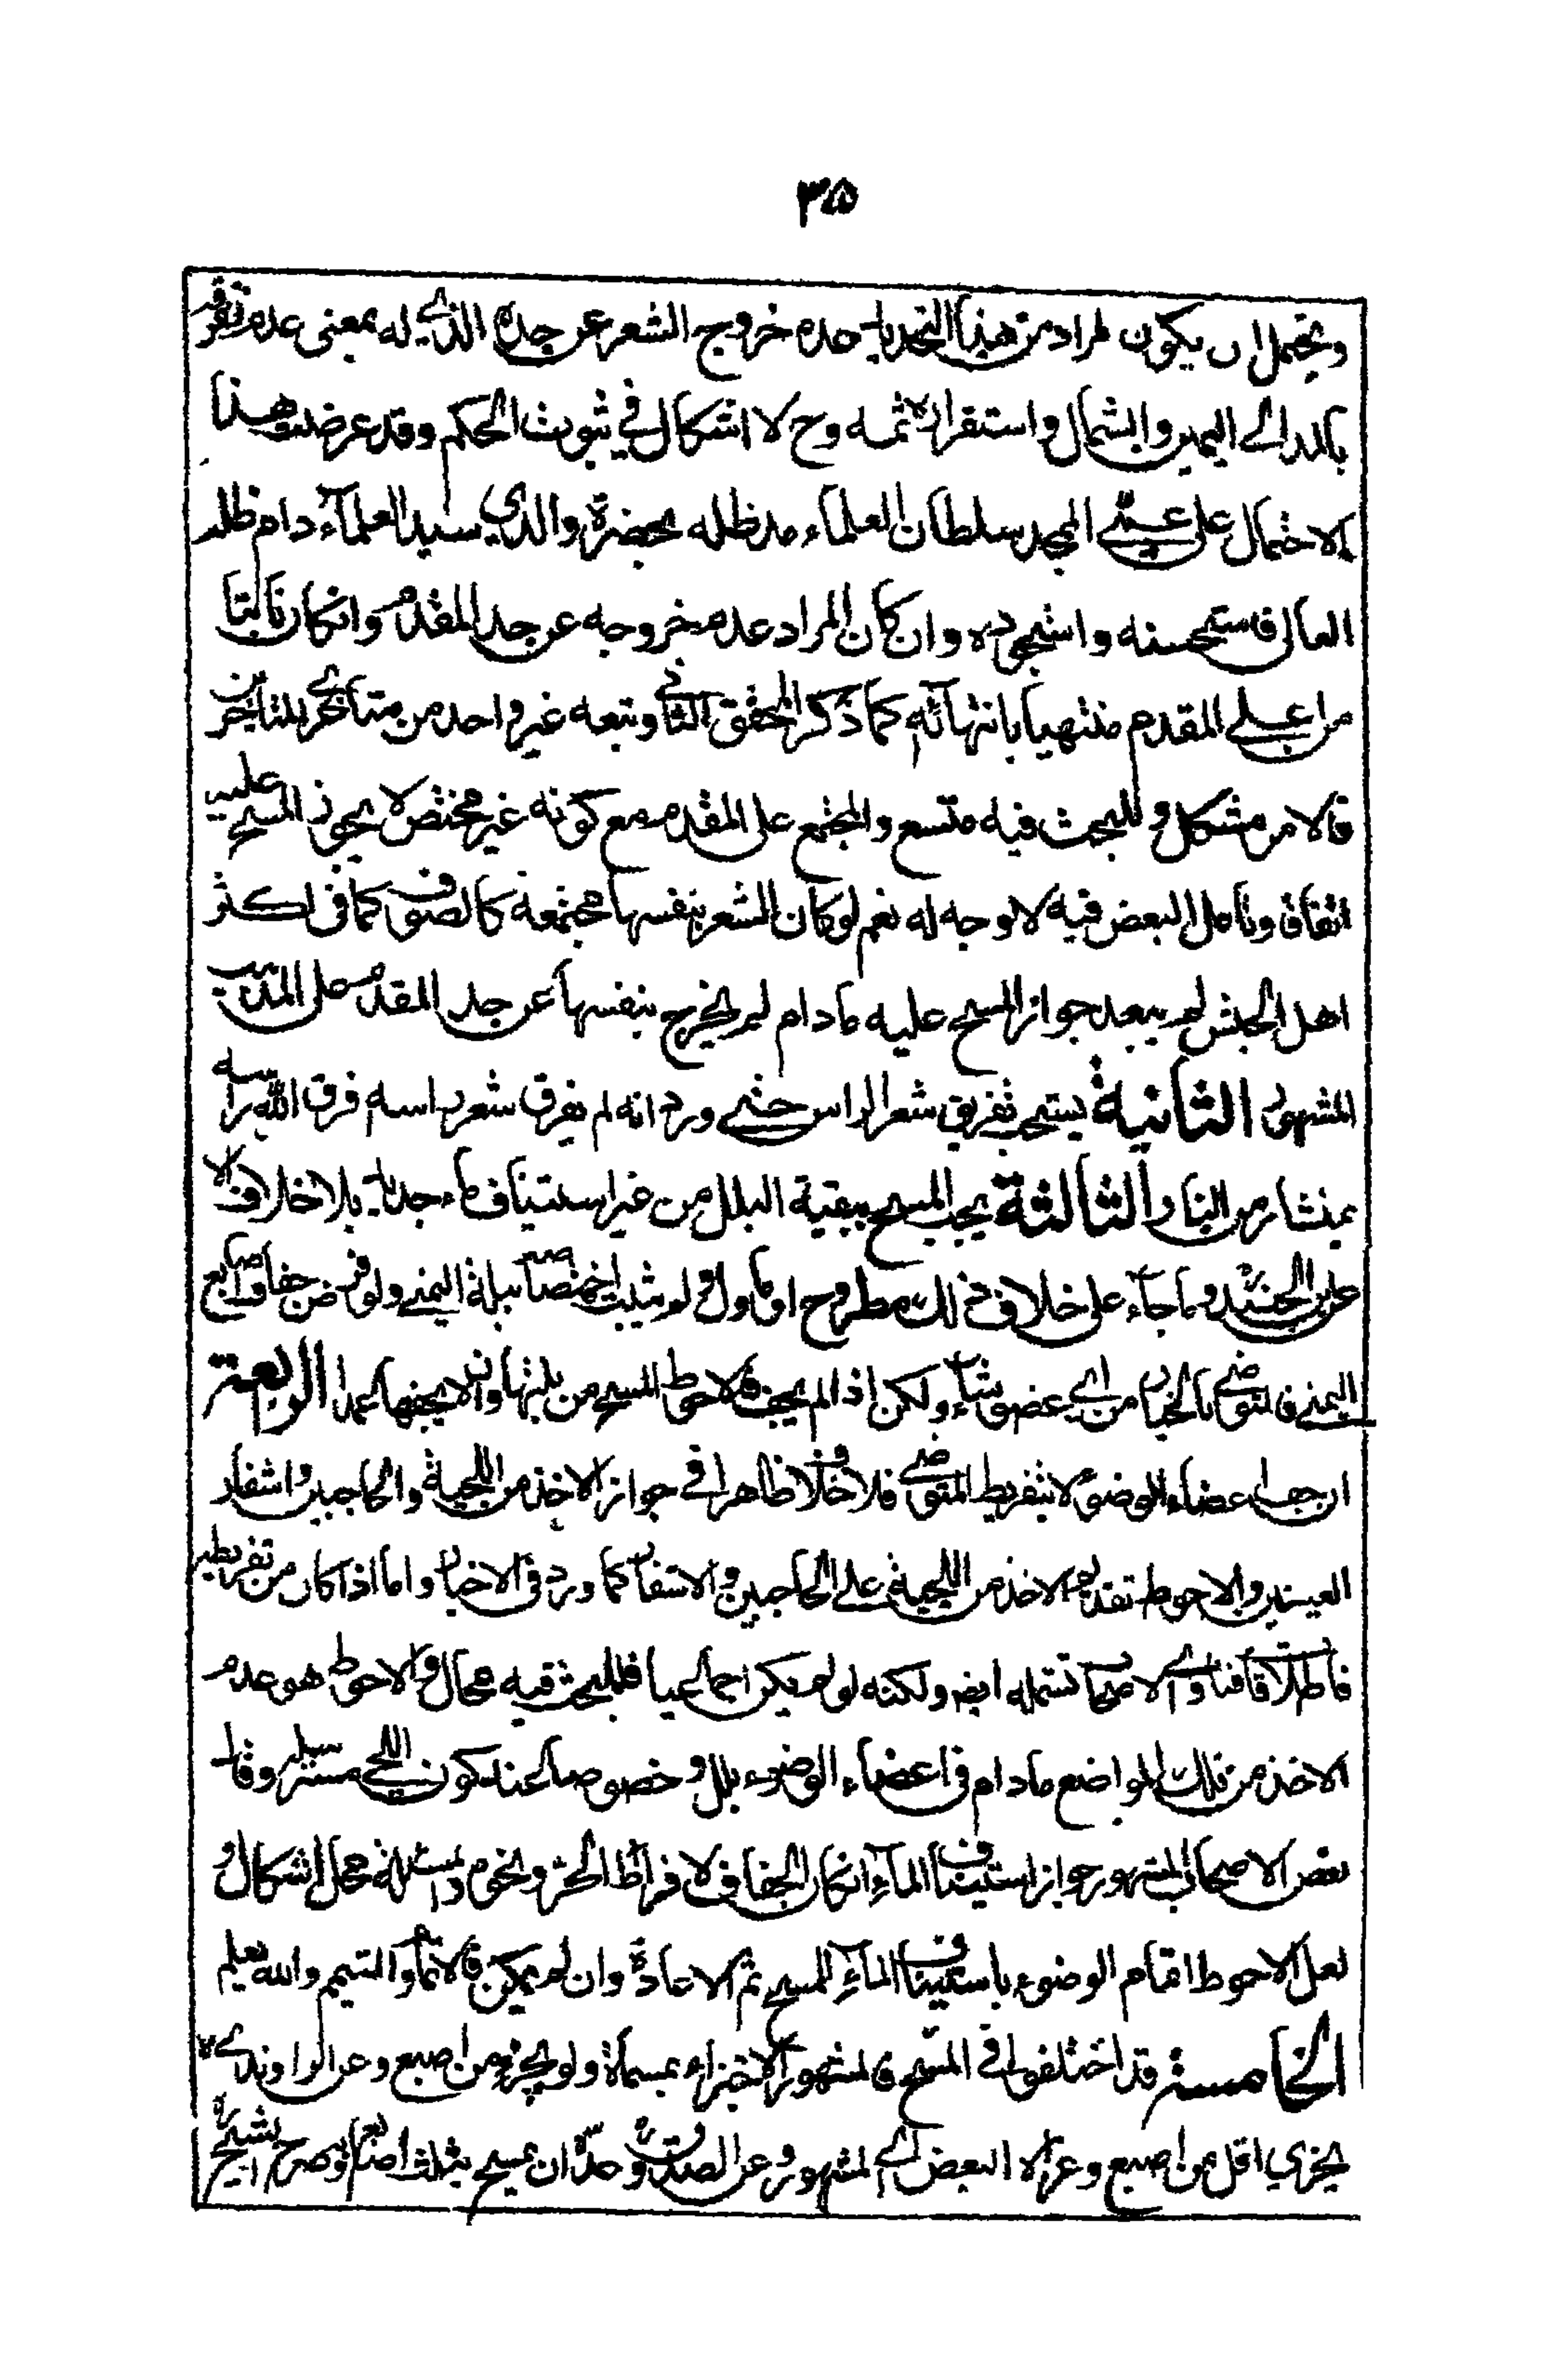 ٣٥
ويحتمل ان يكون المراد من هذا التحديد عدم خروج الشعر عن حده الذي له بمعنى عدم تفرقه
بالمد الى اليمين والشمال واستقراره ثمه وح لا اشكال في ثبوت الحكم وقد عرضت هذا
الاحتمال على عمي المجد سلطان العلماء مد ظله بحضرة والدي سيد العلماء دام ظله
العالى فاستحسنه واستجوده وان كان المراد عدم خروجه عن حد المقدم وانكان نابتا
من اعلى المقدم منتهيا بانتهائه كما ذكر المحقق الثاني وتبعه غير واحد من متأخري المتأخرين
فالامر مشكل وللبحث فيه متسع والمجتمع على المقدم مع كونه غير مختص لا يجوز المسح عليه
اتفاقا وتامل البعض فيه لا وجه له نعم لو كان الشعر بنفسها مجتمعة كالصوف كما في اكثر
اهل الحبش لم يبعد جواز المسح عليه ما دام لم يخرج بنفسها عن حد المقدم على المذهب
المشهور الثانية يستحب تفريق شعر الراس حتى ورد انه لم يفرق شعر راسه فرق الله راسه
بمنشار من النار الثالثة يجب المسح ببقية البلل من غير استيناف ماء جديد بلا خلاف الا
عن ابن الجنيد وما جاء على خلاف ذلك مطروح او ماول ولم يثبت اختصاصه ببلة اليمنى ولو فرض جفاف اصابع
اليمنى فالمتوضي بالخيار من اي عضو شاء ولكن اذا لم يجف فالاحوط المسح من بلتها وان لا يجففها عمدا الرابعة
ان جف اعضاء الوضوء لا بتفريط المتوضي فلا خلاف ظاهرا في جواز الاخذ من اللحية والحاجبين واشفار
العينين والاحوط تقديم الاخذ من اللحية على الحاجبين والاشفار كما ورد في الاخبار واما اذا كان من تفريطه
فاطلاق فتاوى الاصحاب تشمله ايض ولكنه لو لم يكن اجماعيا فللبحث فيه مجال والاحوط هو عدم
الاخذ من تلك المواضع ما دام في اعضاء الوضوء بلل وخصوصا عند كون اللحى مسترسلة وقال
بعض الاصحاب المشهور جواز استيناف الماء انكان الجفاف لافراط الحر ونحوه والمسئلة محل اشكال و
لعل الاحوط اتمام الوضوء باستيناف الماء للمسح ثم الاعادة وان لم يمكن فالاتمام والتيمم والله يعلم
الخامسة قد اختلفوا في المسح فالمشهور الاجتزاء بمسماه ولو بجزء من اصبع وعن الراوندي لا
يجزي اقل من اصبع وعزاه البعض الى المشهور وعن الصدوق حده ان يمسح بثلث اصابع وصرح الشيخ